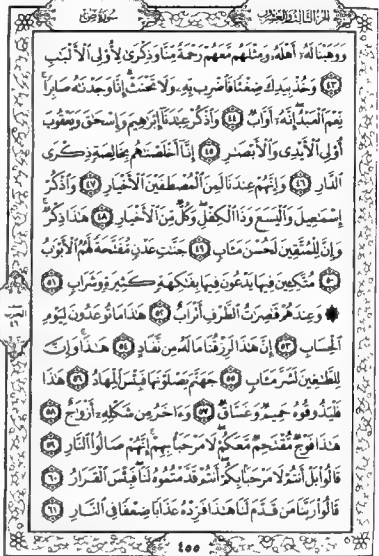 سُورَةُ صٓ الجزء الثالث والعشرون
وَوَهَبْنَا لَهُۥٓ أَهْلَهُۥ وَمِثْلَهُم مَّعَهُمْ رَحْمَةً مِّنَّا وَذِكْرَىٰ لِأُو۟لِى ٱلْأَلْبَٰبِ
٤٣ وَخُذْ بِيَدِكَ ضِغْثًا فَٱضْرِب بِّهِۦ وَلَا تَحْنَثْ ۗ إِنَّا وَجَدْنَٰهُ صَابِرًا ۚ
نِّعْمَ ٱلْعَبْدُ ۖ إِنَّهُۥٓ أَوَّابٌ ٤٤ وَٱذْكُرْ عِبَٰدَنَآ إِبْرَٰهِيمَ وَإِسْحَٰقَ وَيَعْقُوبَ
أُو۟لِى ٱلْأَيْدِى وَٱلْأَبْصَٰرِ ٤٥ إِنَّآ أَخْلَصْنَٰهُم بِخَالِصَةٍ ذِكْرَى
ٱلدَّارِ ٤٦ وَإِنَّهُمْ عِندَنَا لَمِنَ ٱلْمُصْطَفَيْنَ ٱلْأَخْيَارِ ٤٧ وَٱذْكُرْ
إِسْمَٰعِيلَ وَٱلْيَسَعَ وَذَا ٱلْكِفْلِ ۖ وَكُلٌّ مِّنَ ٱلْأَخْيَارِ ٤٨ هَٰذَا ذِكْرٌ ۚ
وَإِنَّ لِلْمُتَّقِينَ لَحُسْنَ مَـَٔابٍ ٤٩ جَنَّٰتِ عَدْنٍ مُّفَتَّحَةً لَّهُمُ ٱلْأَبْوَٰبُ
٥٠ مُتَّكِـِٔينَ فِيهَا يَدْعُونَ فِيهَا بِفَٰكِهَةٍ كَثِيرَةٍ وَشَرَابٍ ٥١
۞ وَعِندَهُمْ قَٰصِرَٰتُ ٱلطَّرْفِ أَتْرَابٌ ٥٢ هَٰذَا مَا تُوعَدُونَ لِيَوْمِ
ٱلْحِسَابِ ٥٣ إِنَّ هَٰذَا لَرِزْقُنَا مَا لَهُۥ مِن نَّفَادٍ ٥٤ هَٰذَا ۚ وَإِنَّ
لِلطَّٰغِينَ لَشَرَّ مَـَٔابٍ ٥٥ جَهَنَّمَ يَصْلَوْنَهَا فَبِئْسَ ٱلْمِهَادُ ٥٦ هَٰذَا
فَلْيَذُوقُوهُ حَمِيمٌ وَغَسَّاقٌ ٥٧ وَءَاخَرُ مِن شَكْلِهِۦٓ أَزْوَٰجٌ ٥٨
هَٰذَا فَوْجٌ مُّقْتَحِمٌ مَّعَكُمْ ۖ لَا مَرْحَبًۢا بِهِمْ ۚ إِنَّهُمْ صَالُوا۟ ٱلنَّارِ ٥٩
قَالُوا۟ بَلْ أَنتُمْ لَا مَرْحَبًۢا بِكُمْ ۖ أَنتُمْ قَدَّمْتُمُوهُ لَنَا ۖ فَبِئْسَ ٱلْقَرَارُ ٦٠
قَالُوا۟ رَبَّنَا مَن قَدَّمَ لَنَا هَٰذَا فَزِدْهُ عَذَابًا ضِعْفًا فِى ٱلنَّارِ ٦١
٤٥٥